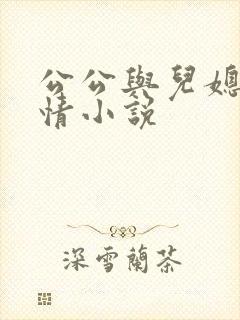 公公與兒媳
情小說
深雪蘭茶